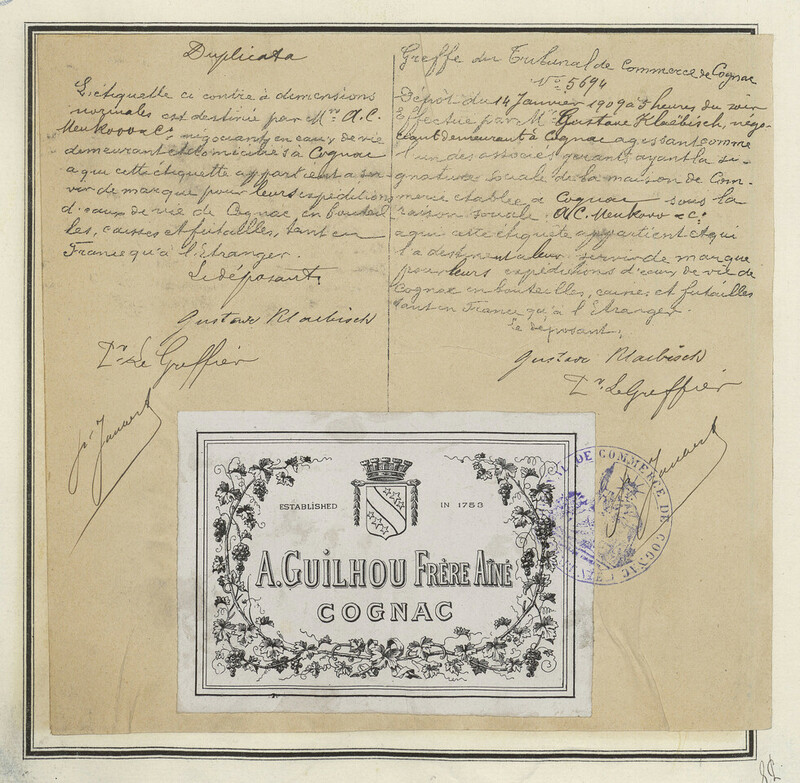 Duplicata
L'étiquette ci contre à dimensions
normales est destinée par Mrs A.C.
Meukow & Co négociants en eaux de vie
demeurant et domiciliés à Cognac
a qui cette étiquette appartient a ser-
vir de marque pour leurs expéditions
d'eaux de vie de Cognac, en bouteil
les, caisses et futailles, tant en
France qu'à l'Etranger.
Le déposant,
Gustav Klaebisch
Le Greffier
Greffe du Tribunal de Commerce de Cognac
No 5694
Dépôt du 14 Janvier 1909 a 3 heures du soir
Effectué par Mr Gustave Klaebisch, négo-
ciant demeurant à Cognac agissant comme
l'un des associés gérants, ayant la si-
gnature sociale de la maison de Com-
merce etablie a Cognac sous la
raison sociale A.C. Meukow & Co
a qui cette étiquete appartient et qui
l'a destinent a leur servir de marque
pour leurs expéditions d'eaux de vie de
Cognac en bouteilles, caisses et futailles
tant en France qu'à l'Etranger.
Le déposant,
Gustav Klaebisch
Le Greffier
ESTABLISHED IN 1753
A. GUILHOU FRÈRE AÎNÉ
COGNAC
DE COMMERCE DE COGNAC